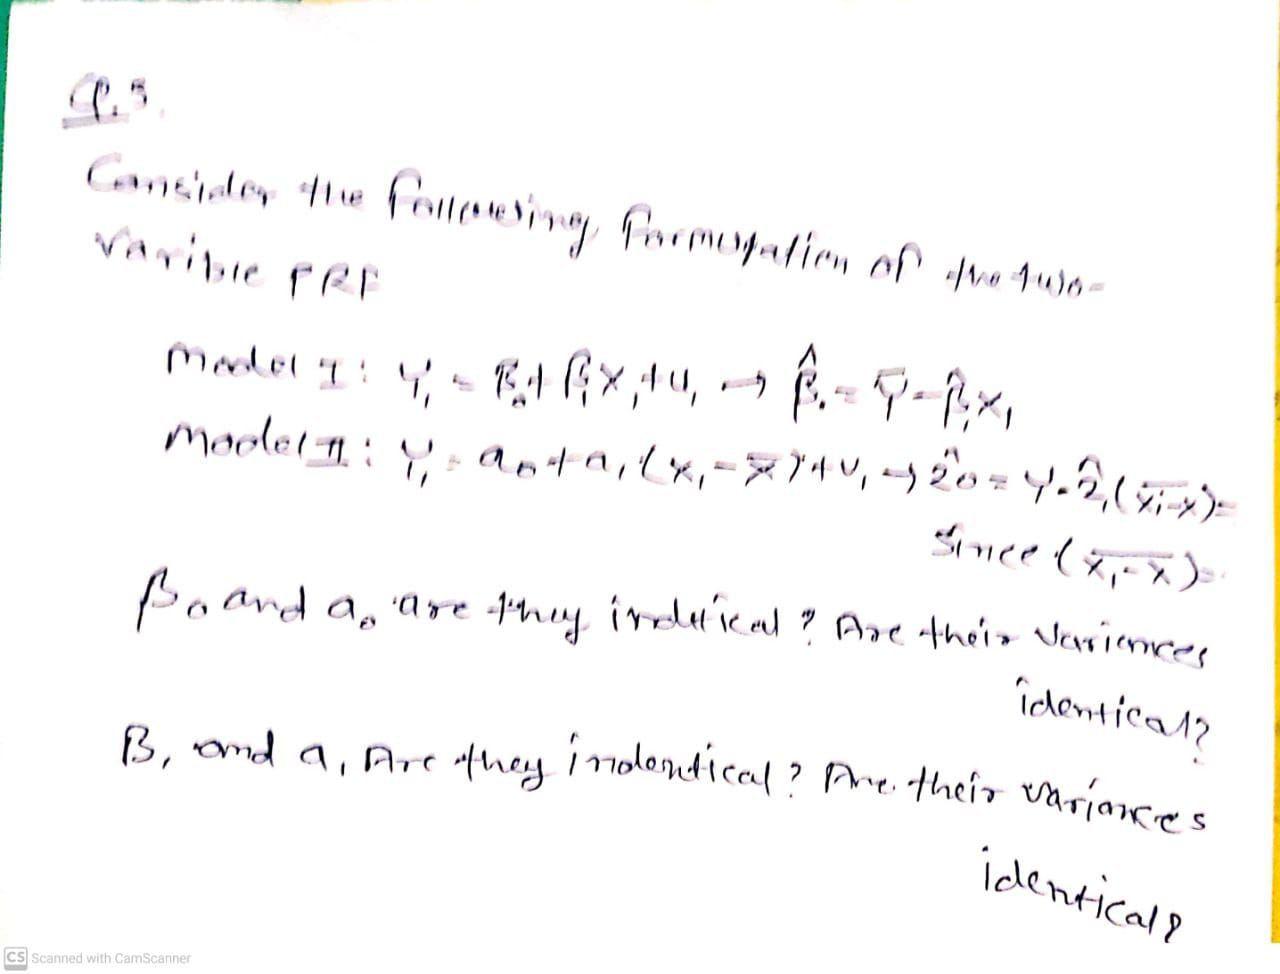 Q.5.
Consider the following formutation of the two-
varible PRF
Model I: Yᵢ = β₀ + β₁Xᵢ + uᵢ → β̂₀ = Ȳ - β̂₁Xᵢ
Model II: Yᵢ = a₀ + a₁(xᵢ - x̄) + uᵢ → â₀ = Y - â₁(x̄ᵢ-x̄) =
Since (xᵢ - x̄) =
β₀ and a₀ are they indetical? Are their variences
identical?
B₁ and a₁ Are they indentical? Are their variances
identical?
CS Scanned with CamScanner